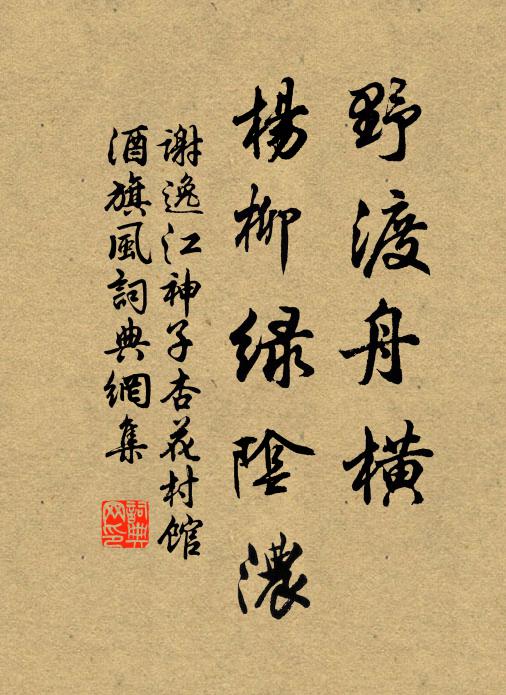 野渡舟橫
楊柳綠陰濃
謝逸江神子杏花村館
酒旗風詞典網集
詞典網印